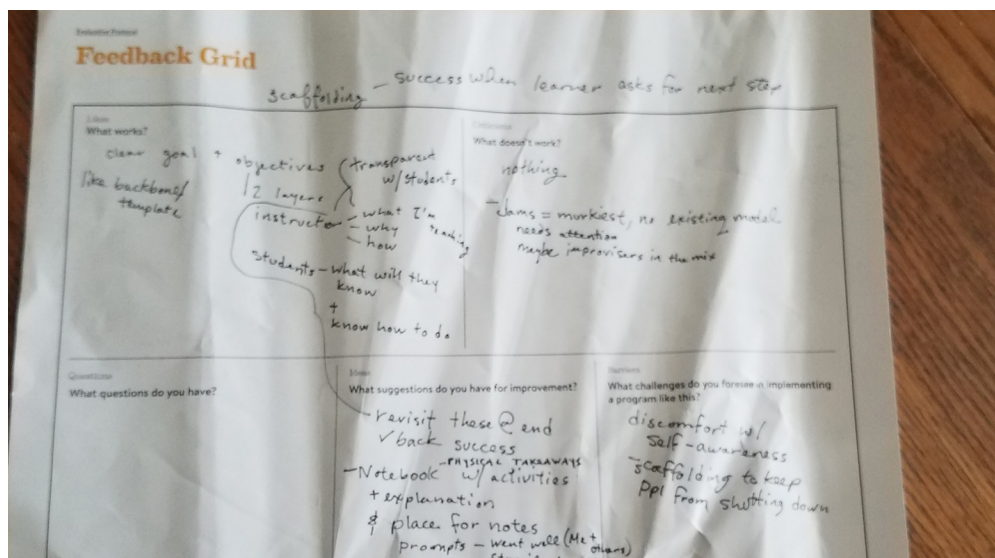 Evaluation Protocol
Feedback Grid
scaffolding – success when learner asks for next step
Likes
What works?
clear goal + objectives (transparent
w/ students
like backbone/
template
2 layers
instructor – what I'm
teaching
– why
– how
students – what will they
know
+
know how to do
What doesn't work?
nothing
– Jams = murkiest, no existing model
needs attention
maybe improvisers in the mix
Questions
What questions do you have?
Ideas
What suggestions do you have for improvement?
– revisit these @ end
✓ back success
– Notebook – PHYSICAL TAKEAWAYS
w/ activities
+ explanation
& place for notes
prompts – went well (Me +
others)
Barriers
What challenges do you foresee in implementing
a program like this?
discomfort w/
self-awareness
– scaffolding to keep
ppl from shutting down